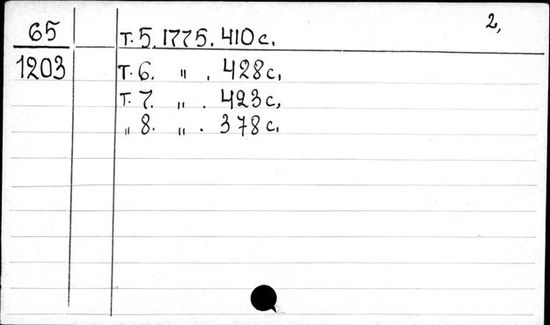 2,
65 т. 5. 1775. 410 с.
1203 т. 6. " . 428 с.
т. 7. " . 423 с.
" 8. " . 378 с.